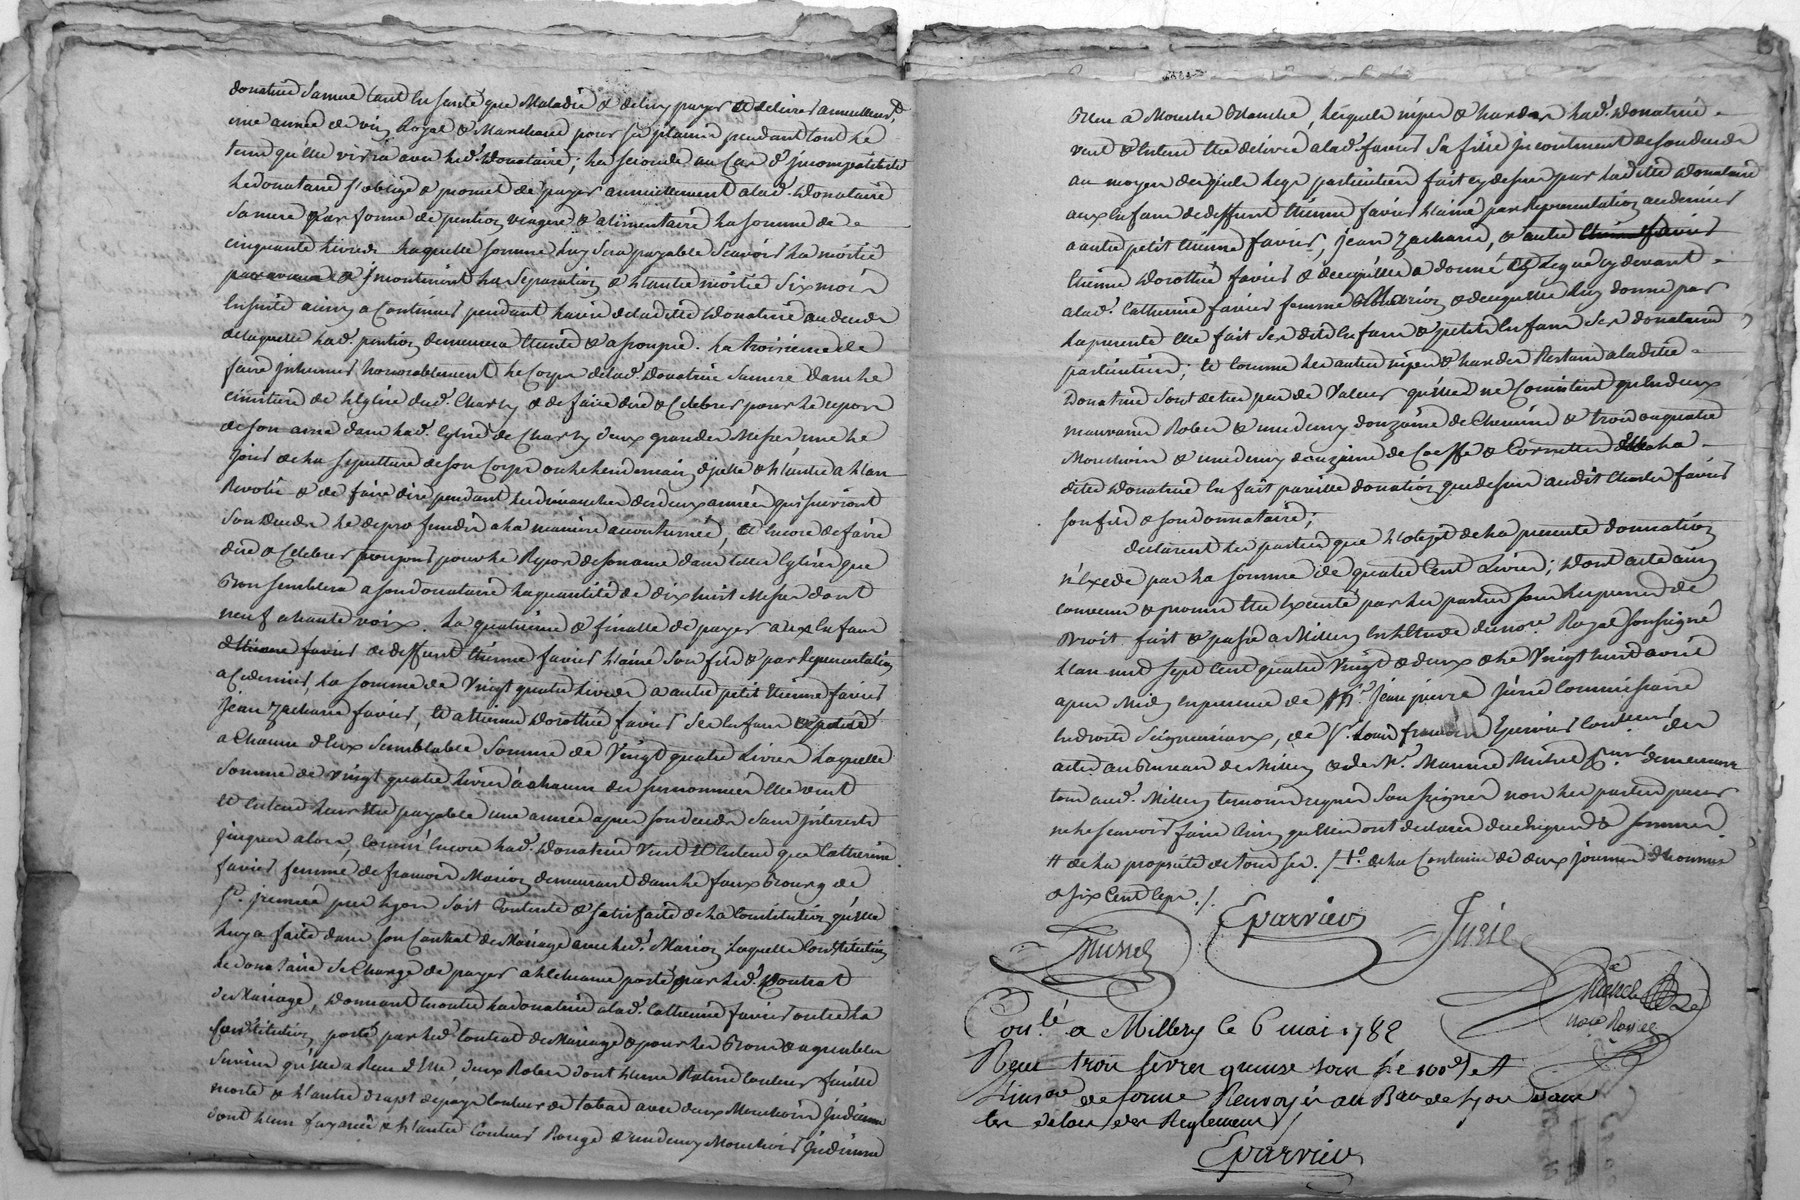 donatrice sa mere tant en santé que Maladie & de luy payer et delivrer annuellemt.
une année de vin Loyal & Marchand pour sa pitance pendant tout le
tems qu'elle vivra avec led. Donataire; la seconde au Cas d'jncompatibilité
le donataire s'oblige & promet de payer annuellement a lad. Donatrice
sa mere par forme de pention viagere & alimentaire la somme de
cinquante livres laquelle somme luy sera payable sçavoir la moitié
jncontinent la separation & l'autre moitié six mois
ensuitte ainsy a Continuer pendant la vie de laditte Donatrice au deceds
de laquelle lad. pention demeurera Eteinte & assoupie. La troisieme de
faire jnhumer honorablement le Corps de lad. Donatrice sa mere dans le
cimitiere de l'Eglise dud. Charly & de faire dire & Celebrer pour le repos
de son ame dans lad. Eglise de Charly deux grandes Messes une le
jour de la sepulture de son Corps ou le lendemain d'jcelle & l'autre a l'an
Revolu & de faire dire pendant les dimanches des deux années qui suivront
son deceds le de profundis a la maniere accoutumée, et Encore de faire
dire & Celebrer pour le Repos de son ame dans telles Eglises que
Bon semblera a son donataire la quantité de dix huit Messes dont
neuf a haute voix. La quatrieme & finalle de payer aux Enfans
de deffunt Etienne favier l'ainé son fils & par Representation
a Ce dernier, la somme de Vingt quatre livres a autre petit Etienne favier
Jean Zacharie favier, et a Etienne Dorothée favier ses Enfans
a Chacun d'Eux semblable somme de Vingt quatre livres laquelle
somme de vingt quatre livres a chacun des surnommés Elle veut
et Entend leur Etre payable une année apres son deceds sans jnterets
jusques alors, Comm'Encore lad. Donatrice Veut et Entend que Catherine
favier femme de francois Marion demeurant dans le faux Bourg de
St. jrennée pres Lyon soit Contente & satisfaite de la Constitution qu'Elle
luy a faite dans son Contrat de Mariage avec led. Marion Laquelle Constitution
le donataire se Charge de payer a l'Echeance portée par led. Contrat
de Mariage, Donnant En outre la donatrice a lad. Catherine favier outre la
Constitution portée par led. Contrat de Mariage & pour les Bons & agreables
services qu'Elle a Reçu d'Elle, deux Robes dont l'une Ratine Couleur feuille
morte & l'autre drapt de pays Couleur de tabac avec deux Mouchoirs Jndienne
dont l'un & l'autre Couleur Rouge & un demy Mouchoir Jndienne
Bleu a Mouche Blanche, lesquels nipes & hardes lad. Donatrice
veut & Entend Etre delivrés a lad. favier sa fille jncontinent de son deceds
au moyen desquels legs particuliers faits cy dessus par laditte Donatrice
aux Enfans de deffunt Etienne favier l'ainé par Representation au dernier
a autre petit Etienne favier, Jean Zacharie, & autre
Etienne Dorothée favier & de ce qu'Elle a donné & Legué cy devant
a lad. Catherine favier femme Marion & de ce qu'Elle luy donne par
la presente Elle fait ses dits Enfans & petits Enfans ses donataires
particuliers; et Comme les autres nipes & hardes Restants a laditte
Donatrice sont de tres peu de Valeur qu'Elles ne Consistent qu'En deux
mauvaises Robes & une demy douzaine de Chemises & trois ou quatre
Mouchoirs & une demy douzaine de Coeffes & Cornettes la
ditte Donatrice En fait pareille donation que dessus audit Charles favier
son fils & son donnataire;
declarent les parties que l'objet de la presente donnation
n'Exede pas la somme de quatre Cent Livres; Dont acte ainsy
convenu & promis Etre Executé par les parties sous les peines de
Droit fait & passé a Millery En l'Etude du nore. Royal soussigné
l'an mil sept Cent quatre Vingt & deux & le Vingt huit avril
apres Midy En presence de Me. Jean pierre Jurie Commissaire
En droits seigneuriaux, de Sr. Louis francois Eparvier Conlleur des
actes au Bureau de Millery & de Sr. Maurice Musnel demeurants
tous aud. Millery temoins requis soussignés non les parties pour
ne le sçavoir faire Ainsy qu'Elles ont declaré de ce Enquis & sommés.
# de la propriété de tous ses. /1º. de la Contenue de deux journées d'hommes
& six Cent Ceps./.
Musnel
Eparvier
Jurie
nore Royal
Conlé a Millery le 6 mai 1782
Reçu trois livres quinse sous
de forme Renvoyé au Bau de Lyon dans
les delais des Reglemens
Eparvier